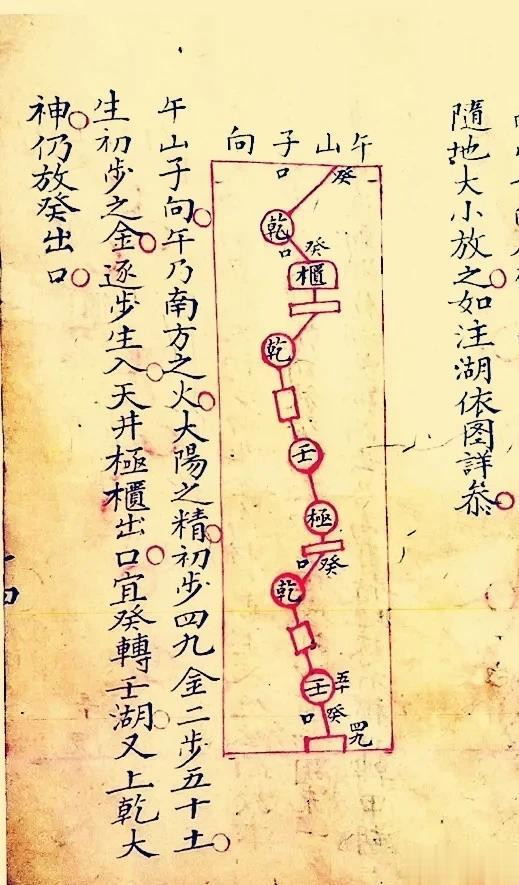 隨地大小放之如注湖依图詳叅
午山子向
癸
口
乾
癸
口
櫃
乾
壬
極
癸
口
乾
壬
五十
癸
口
四九
午山子向午乃南方之火大陽之精初步四九金二步五十土
生初步之金逐步生入天井極櫃出口宜癸轉壬湖又上乾大
神仍放癸出口